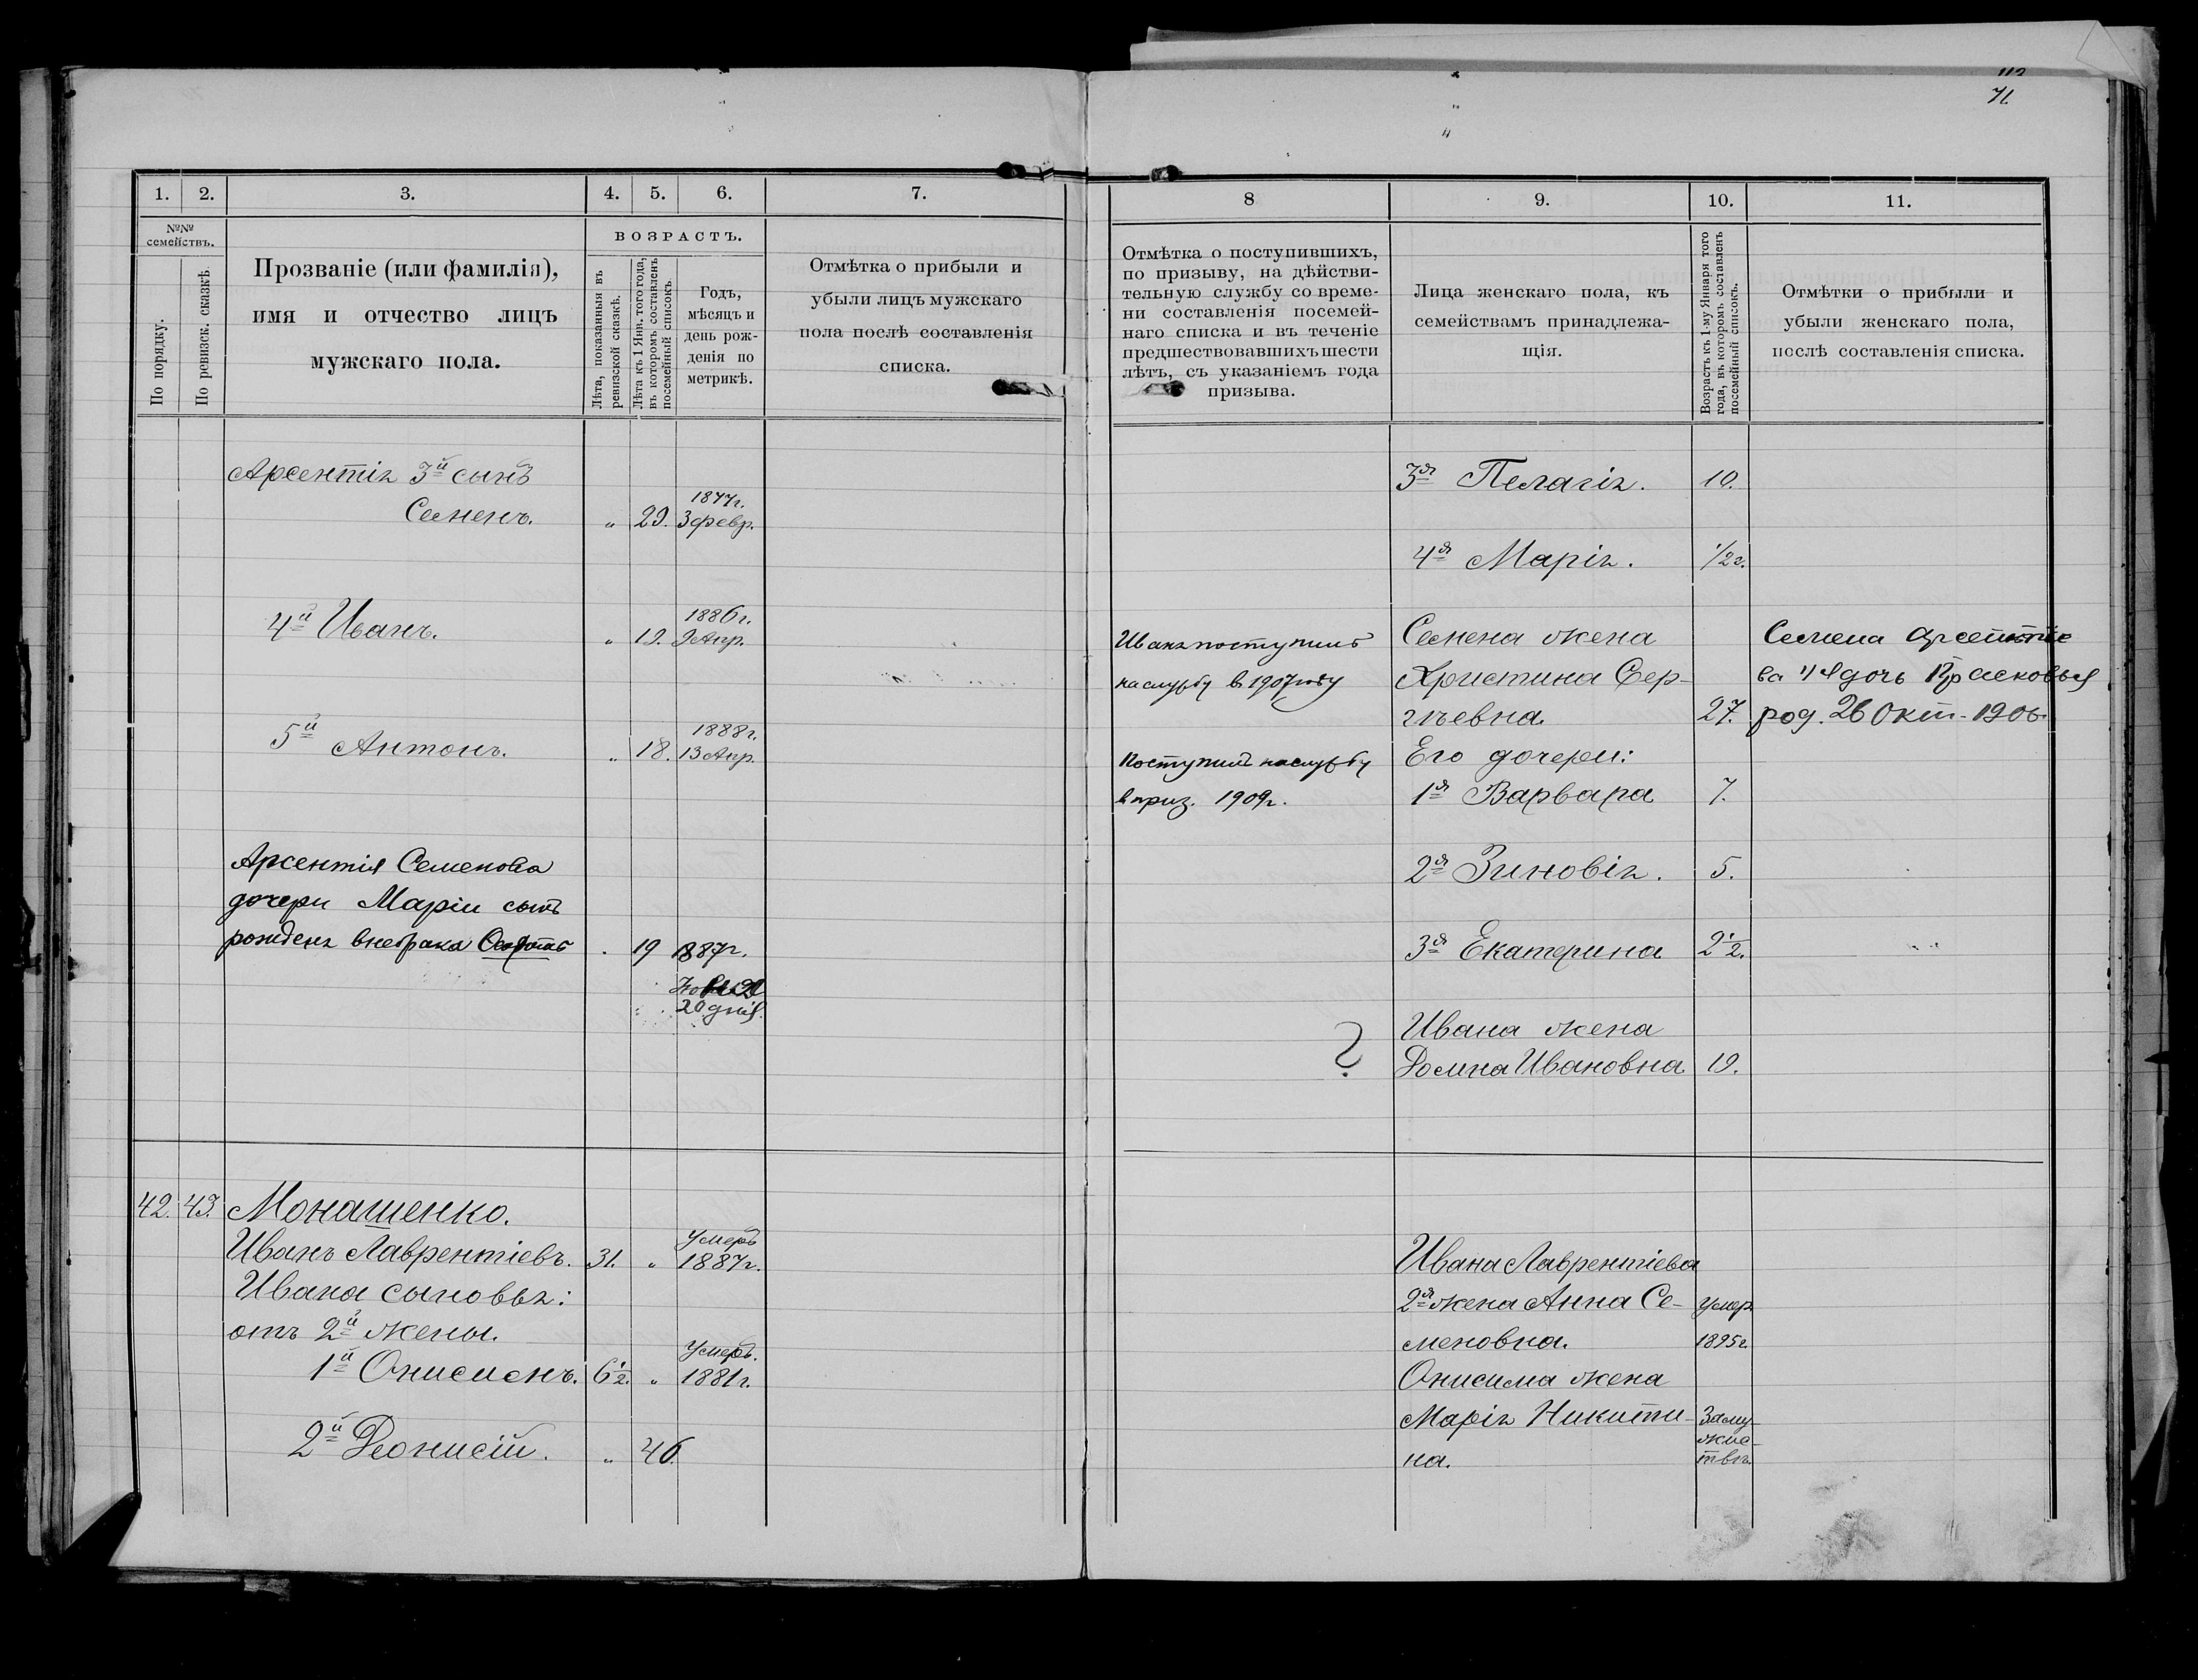 71
1.
2.
3.
4.
5.
6.
7.
№№
семействъ.
По порядку.
По ревизск. сказкѣ.
Прозваніе (или фамилія),
имя и отчество лицъ
мужскаго пола.
ВОЗРАСТЪ.
Лѣта, показанныя въ
ревизской сказкѣ.
Лѣта къ 1 Янв. того года,
въ которомъ составленъ
посемейный списокъ.
Годъ,
мѣсяцъ и
день рож-
денія по
метрикѣ.
Отмѣтка о прибыли и
убыли лицъ мужскаго
пола послѣ составленія
списка.
Арсентія 3й сынъ
1877г.
Семенъ. " 29. 3 февр.
1886г.
4й Иванъ. " 19. 9 Апр.
1888г.
5й Антонъ. " 18. 13 Апр.
Арсентія Семенова
дочери Маріи сынъ
рожденъ внебрака 19 1887г.
20 дня
42. 43. Монашенко.
Умеръ
Иванъ Лаврентіевъ. 31. " 1887г.
Ивана сыновья:
отъ 2й жены.
Умеръ.
1й Онисимъ. 6½. " 1881г.
2й Деонисій. " 46.
8
9.
10.
11.
Отмѣтка о поступившихъ,
по призыву, на дѣйстви-
тельную службу со време-
ни составленія посемей-
наго списка и въ теченіе
предшествовавшихъ шести
лѣтъ, съ указаніемъ года
призыва.
Лица женскаго пола, къ
семействамъ принадлежа-
щія.
Возрастъ къ 1-му Января того
года, въ которомъ составленъ
посемейный списокъ.
Отмѣтки о прибыли и
убыли женскаго пола,
послѣ составленія списка.
3я Пелагія. 10.
4я Марія. ½ г.
Иванъ поступилъ Семена жена Семена Арсентіе
на службу в 1907 году Христина Сер- ва 4я дочь Прасковья
гѣевна. 27. род. 26 Окт. 1906
Поступилъ на службу Его дочери:
в приз. 1909г. 1я Варвара 7.
2я Зиновія. 5.
3я Екатерина 2½.
Ивана жена
? Домна Ивановна 19.
Ивана Лаврентіева
2я жена Анна Се- Умер.
меновна. 1895г.
Онисима жена
Марія Никити- Заму
жне-
на. ствѣ